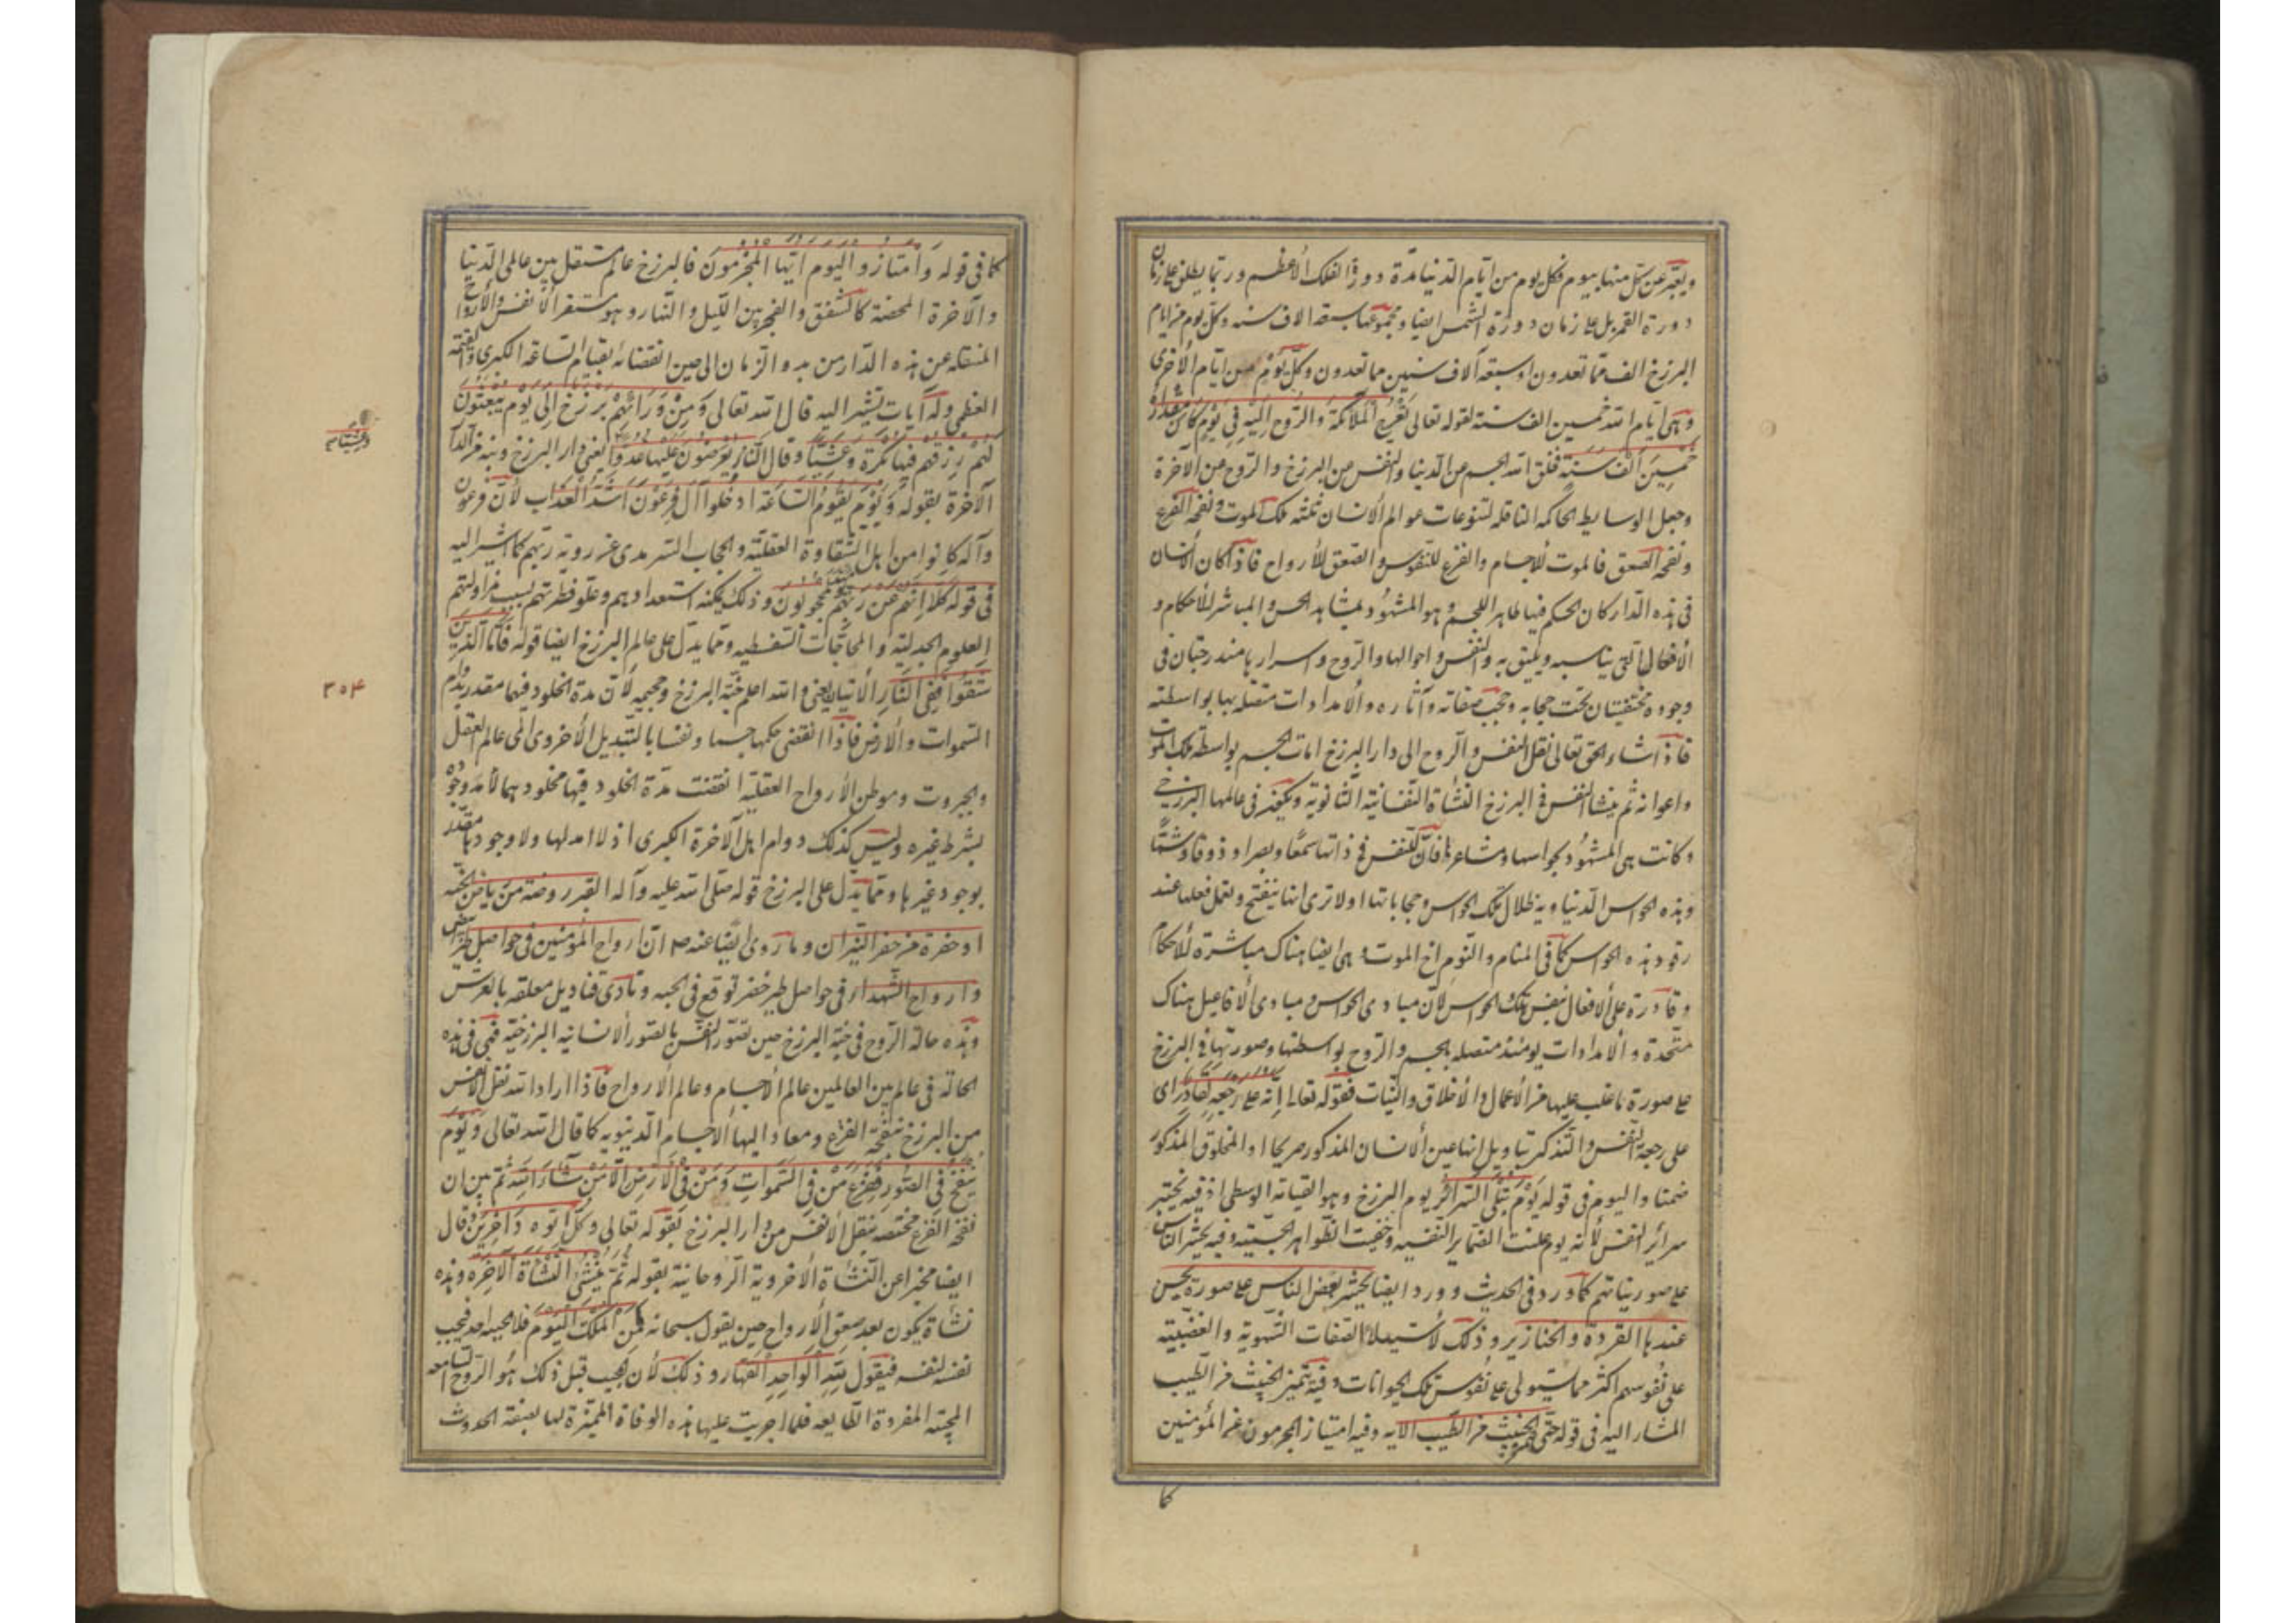 ويعبر عن كل منها بيوم فكل يوم من ايام الدنيا مدة دورة الفلك الأعظم وربما يطلق على زمان
دورة القمر بل على زمان دورة الشمس ايضا ومجموعها سبعة الاف سنه وكل يوم من ايام
البرزخ الف مما تعدون او سبعة آلاف سنين مما تعدون وكل يوم من ايام الأخرى
وهى أيام الله خمسين الف سنة لقوله تعالى تعرج الملائكة والروح اليه في يوم كان مقداره
خمسين الف سنة فخلق الله الجسم من الدنيا والنفس من البرزخ والروح من الآخرة
وجعل الوسايط الحاكمه الناقله لتنوعات عوالم الأنسان ثلثه ملك الموت ونفخة الفزع
ونفخة الصعق فالموت للأجسام والفزع للنفوس والصعق للأرواح فاذا كان الأنسان
فى هذه الدار كان الحكم فيها ظاهرا للجسم وهو المشهود بمشاهد الحس والمباشر للأحكام و
الأفعال التى يناسبه ويليق به والنفس واحوالها والروح واسرارها مندرجتان فى
وجوده مختفيتان تحت حجابه وحجب صفاته وآثاره والأمدادات متصله بها بواسطته
فاذا شاء الحق تعالى نقل النفس والروح الى دار البرزخ امات الجسم بواسطة ملك الموت
واعوانه ثم ينشأ النفس فى البرزخ النشأة النفسانية الثانوية ويكون فى عالمها البرزخى
وكانت هى المشهود بحواسها ومشاعرها فأن للنفس فى ذاتها سمعا وبصرا وذوقا وشما
وهذه الحواس الدنياويه ظلال تلك الحواس وحجاباتها اولا ترى انها ينفتح وتعمل فعلها عند
رقود هذه الحواس كما فى المنام والنوم اخ الموت وهى ايضا هناك مباشرة للأحكام
وقادرة على الأفعال بنفس تلك الحواس لأن مبادى الحواس ومبادى الأفاعيل هناك
متحدة والأمدادات يومئذ متصله بالجسم والروح بواسطتها وصورتها فى البرزخ
على صورة ما غلب عليها من الأعمال والأخلاق والنيات فقوله تعالى انه على رجعه لقادر اى
على رجعة النفس والتذكر بتأويل انها عين الأنسان المذكور صريحا او المخلوق المذكور
ضمنا واليوم فى قوله يوم تبلى السرائر يوم البرزخ وهو القيامة الوسطى اذ فيه يختبر
سرائر النفس لأنه يوم علنت الضماير النفسيه وخفيت الظواهر الحسيه وفيه يحشر الناس
على صور نياتهم كما ورد فى الحديث وورد ايضا يحشر بعض الناس على صورة يحسن
عندها القردة والخنازير وذلك لأستيلاء الصفات الشهوية والغضبيه
على نفوسهم اكثر مما يستولى على نفوس تلك الحيوانات وفيه يتميز الخبيث من الطيب
المشار اليه فى قوله حتى يميز الخبيث من الطيب الايه وفيه امتياز المجرمون عن المؤمنين
كما
كما فى قوله وامتازوا اليوم ايها المجرمون فالبرزخ عالم مستقل بين عالمى الدنيا
والآخرة المحضة كالشفق والفجر بين الليل والنهار وهو مستقر الأنفس والأرواح
المنتقله عن هذه الدار من بدو الزمان الى حين انقضائه بقيام الساعة الكبرى والقيمة
العظمى وله آيات تشير اليه قال الله تعالى ومن ورائهم برزخ الى يوم يبعثون
لهم رزقهم فيها بكرة وعشيا وقال النار يعرضون عليها غدوا يعنى دار البرزخ ونبه من الدار
وعشيا
الآخرة بقوله ويوم يقوم الساعة ادخلوا آل فرعون اشد العذاب لأن فرعون
وآله كانوا من اهل الشقاوة العقلية والحجاب السرمدى عن رؤية ربهم كما اشير اليه
فى قوله كلا انهم عن ربهم يومئذ لمحجوبون وذلك يمكنه استعدادهم وعلو فطرتهم بسبب مزاولتهم
العلوم الجدلية والمحاجات السفسطيه ومما يدل على عالم البرزخ ايضا قوله فأما الذين
شقوا ففى النار الأيتان يعنى والله اعلم جنة البرزخ وجحيمه لأن مدة الخلود فيها مقدر بدوام
٣٠۴
السموات والأرض فاذا انقضى حكمها جسما ونفسا بالتبديل الأخروى الى عالم العقل
والجبروت وموطن الأرواح العقلية انقضت مدة الخلود فيها فخلودهما لأمد وجوده
بشرط غيره وليس كذلك دوام اهل الآخرة الكبرى اذ لا امد لها ولا وجودها مقدر
بوجود غيرها ومما يدل على البرزخ قوله صلى الله عليه وآله القبر روضة من رياض الجنه
او حفرة من حفر النيران وما روى ايضا عنه ص ان ارواح المؤمنين فى حواصل طير بيض
وارواح الشهداء فى حواصل طير خضر توقع فى الجنه وتأوى قناديل معلقه بالعرش
وهذه حالة الروح فى جنة البرزخ حين تصور النفس بالصور الأنسانيه البرزخية فهى فى هذه
الحالة فى عالم بين العالمين عالم الأجسام وعالم الأرواح فاذا اراد الله نقل الأنفس
من البرزخ بنفخة الفزع ومعاد اليها الأجسام الدنيويه كما قال الله تعالى ويوم
ينفخ فى الصور ففزع من فى السموات ومن فى الأرض الا من شاء الله ثم بين ان
نفخة الفزع مختصه بنقل الأنفس من دار البرزخ بقوله تعالى وكل اتوه داخرين وقال
ايضا مخبرا عن النشأة الأخروية الروحانية بقوله ثم ينشئ النشأة الآخرة وهذه
نشأة يكون بعد صعق الأرواح حين يقول سبحانه لمن الملك اليوم فلا يجيبه احد فيجيب
نفسه لنفسه فيقول لله الواحد القهار وذلك لأن المجيب قبل ذلك هو الروح السامعه
المجيبه المفردة الطايعه فلما اجريت عليها هذه الوفاة المميزة لها بصفة الحدوث